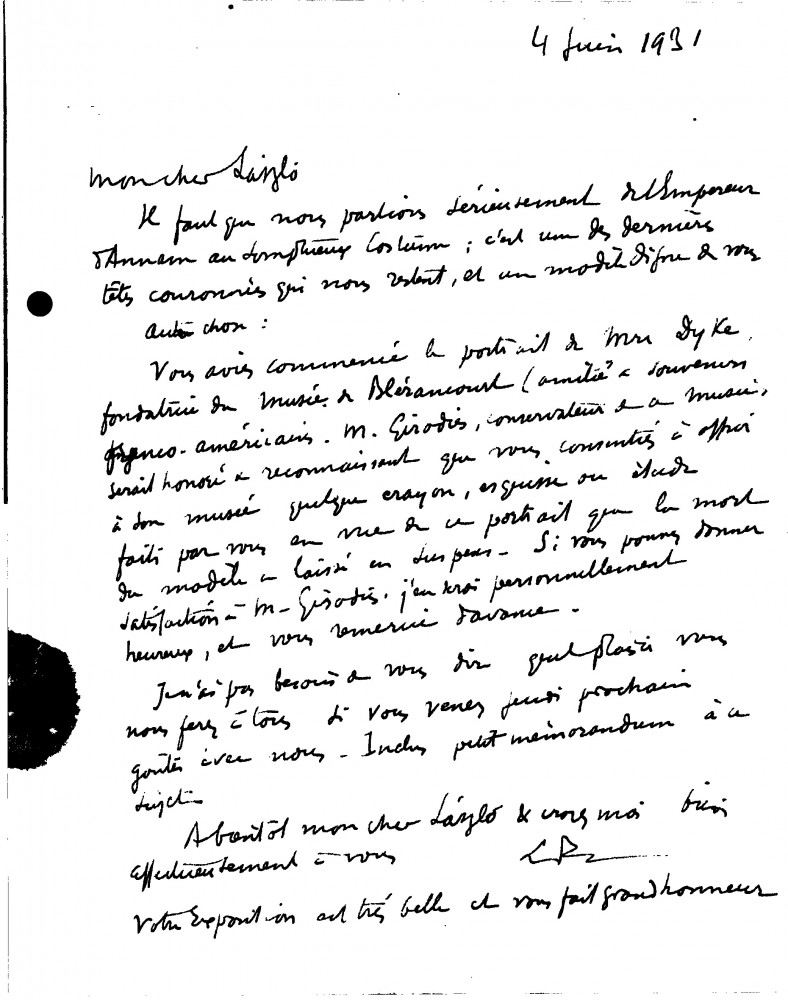 4 Juin 1931
Mon cher László
Il faut que nous parlions sérieusement de l'Empereur
d'Annam au somptueux Costume ; c'est une des dernières
têtes couronnées qui nous restent, et un modèle digne de vous
Autre chose :
Vous aviez commencé le portrait de Mrs Dyke,
fondatrice du Musée de Blérancourt (amitié & souvenirs
franco-américains. M. Girodie, conservateur de ce musée,
serait honoré & reconnaissant que vous consentiez à offrir
à son musée quelque crayon, esquisse ou étude
faits par vous en vue de ce portrait que la mort
du modèle a laissé en suspens - Si vous pouvez donner
satisfaction à M. Girodie, j'en serai personnellement
heureux, et vous remercie d'avance -
Je n'ai pas besoin de vous dire quel plaisir vous
nous ferez à tous si vous venez jeudi prochain
goûter avec nous - Inclus petit mémorandum à ce
sujet
A bientôt mon cher László & croyez moi bien
affectueusement à vous
Votre Exposition est très belle et vous fait grand honneur